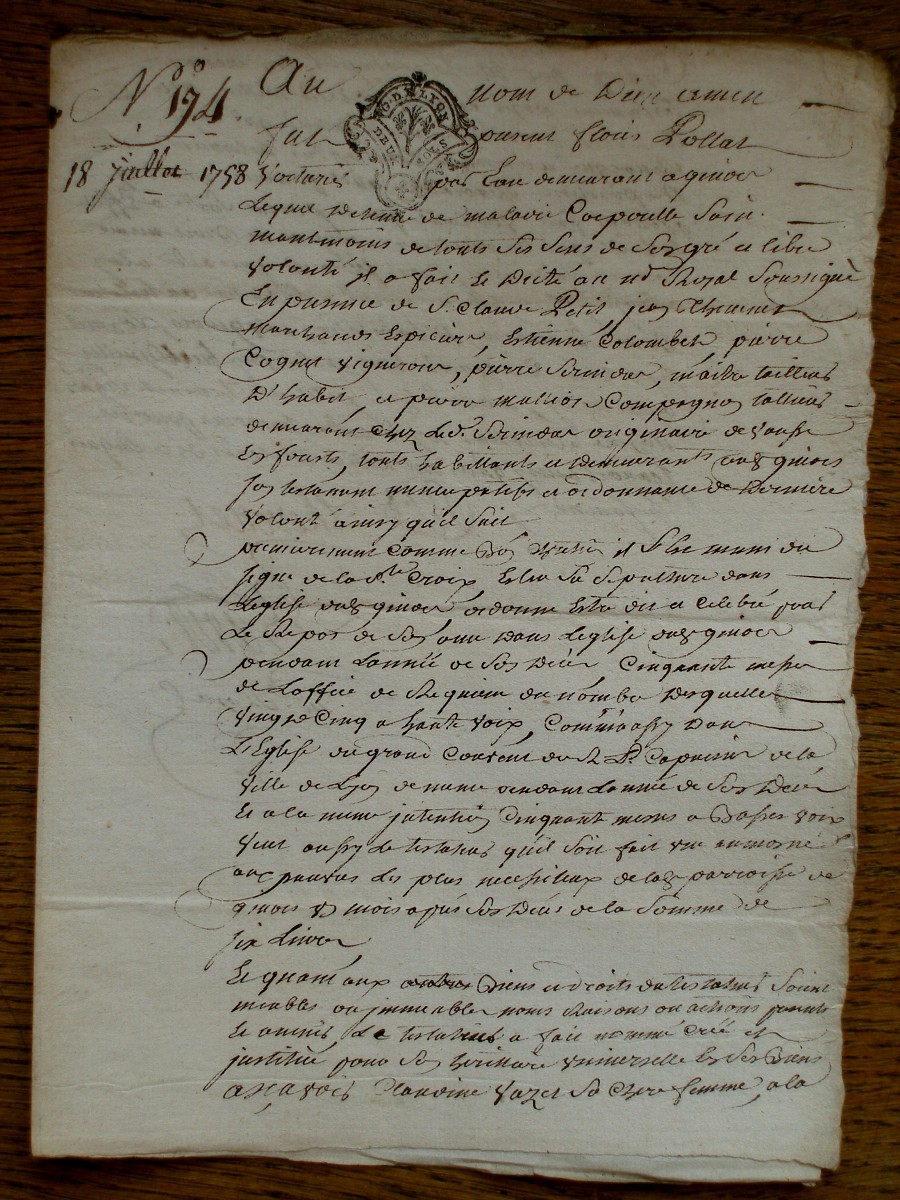 N° 174
18 Juillet 1758
Au nom de Dieu amen
fut present flori Pollat
GEN. DE LYON
DEUX SOLS
Voiturié par Eau demeurant a givor
Lequel de maladie Corporelle Sain
neantmoins de touts Ses Sens de Son gré et libre
volonté il a fait Le dicté au nre Royal Soussigné
En presence de Sr. Claude Petit, jean
marchands Epicier, Estienne Colombet pierre
Cognet vigneron, pierre maitre tailleur
D'habit, et pierre Compagnon tallieur
demeurant chez Led. originaire de
En forests, touts habittants et demeurants aud. givors
son testament nuncupatif et ordonnance de derniere
volonté ainsy qu'il Suit
premierement comme bon il S'est muni du
signe de la Ste. Croix Eslu Sa Sepulture dans
L'eglise dud. givors ordonne Estre dit et Celebré pour
Le Repos de Son ame dans L'eglise dud. givors
pendant L'année de Son deces Cinquante messes
de L'office de Requiem du nombre desquelles
vingt Cinq a haute voix, Comm'aussy dans
L'Eglise du grand Couvent des R. P. Capucins de la
ville de Lyon de meme pendant L'année de Son deces
Et a la meme jntention Cinquant messes a basses voix
veut aussy Le testateur qu'il Soit fait une aumosne
aux pauvres Les plus necessiteux de lad. parroisse de
givors un mois apres Son deces de la Somme de
six Livres
Et quant aux autres biens et droits du testateur Soient
meubles ou jmmeubles noms Raisons ou actions presents
Et avenir Le testateur a fait nommé créé et
jnstitué pour Son heritiere universelle En Ses biens
asçavoir Claudine Sa Chere femme, a la